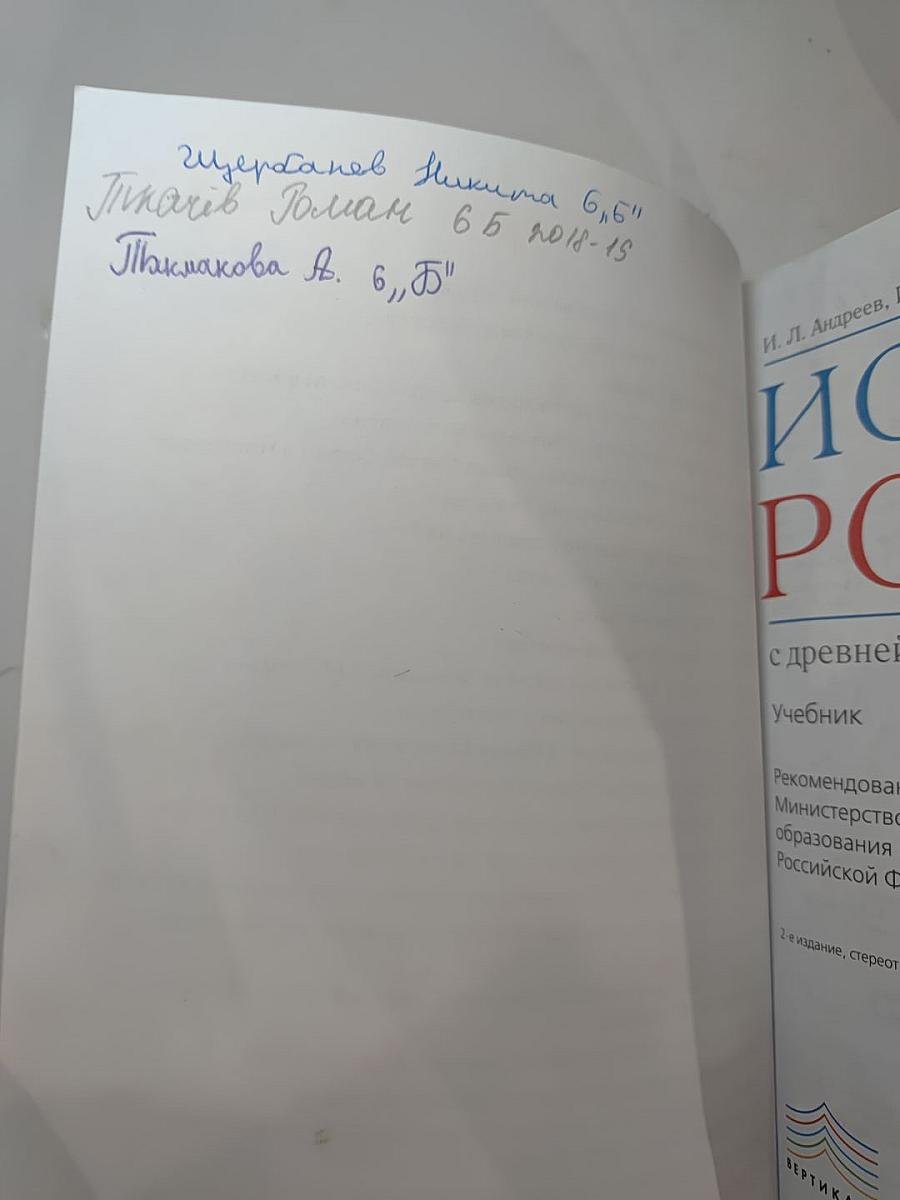 Щербанев Никита 6 „Б"
Ткачёв Роман 6 Б 2018-19
Токмакова А. 6 „Б"
И. Л. Андреев,
ИС
РО
с древней
Учебник
Рекомендован
Министерство
образования
Российской Ф
2-е издание, стереот
ВЕРТИКА